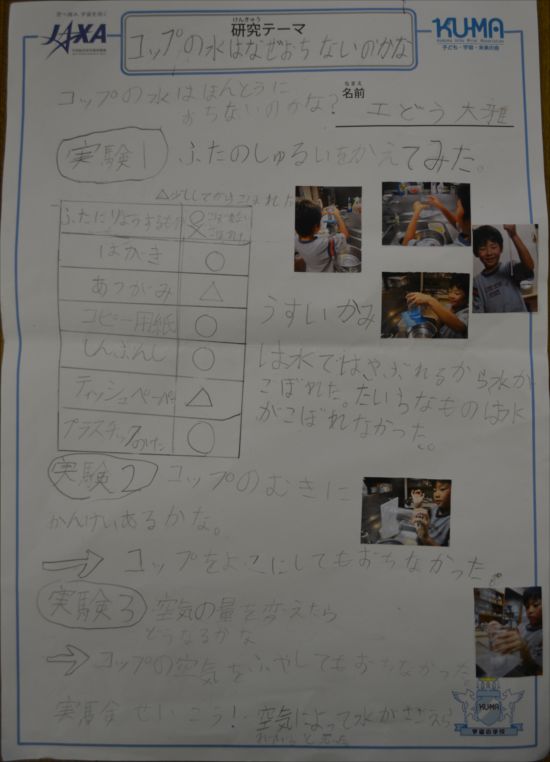 宙へ挑み、宇宙を拓く
JAXA
けんきゅう
研究テーマ
コップの水はなぜおちないのかな
KU-MA
子ども・宇宙・未来の会
コップの水はほんとうに
おちないのかな?
なまえ
名前
工どう大雅
実験1 ふたのしゅるいをかえてみた。
△少ししてからこぼれた
ふたにりようするもの
○こぼれない
×こぼれた
はがき ○
あつがみ △
コピー用紙 ○
しんぶんし ○
ティッシュペーパー △
プラスチックのいた ○
うすいかみ
は水では、やぶれるから水が
こぼれた。たいらなものは水
がこぼれなかった。
実験2 コップのむきに
かんけいあるかな。
→ コップをよこにしてもおちなかった。
実験3 空気の量を変えたら
どうなるかな
→ コップの空気をふやしてもおちなかった。
実験せいこう! 空気によって水がささえら
れていると思った
KU-MA
宇宙の学校